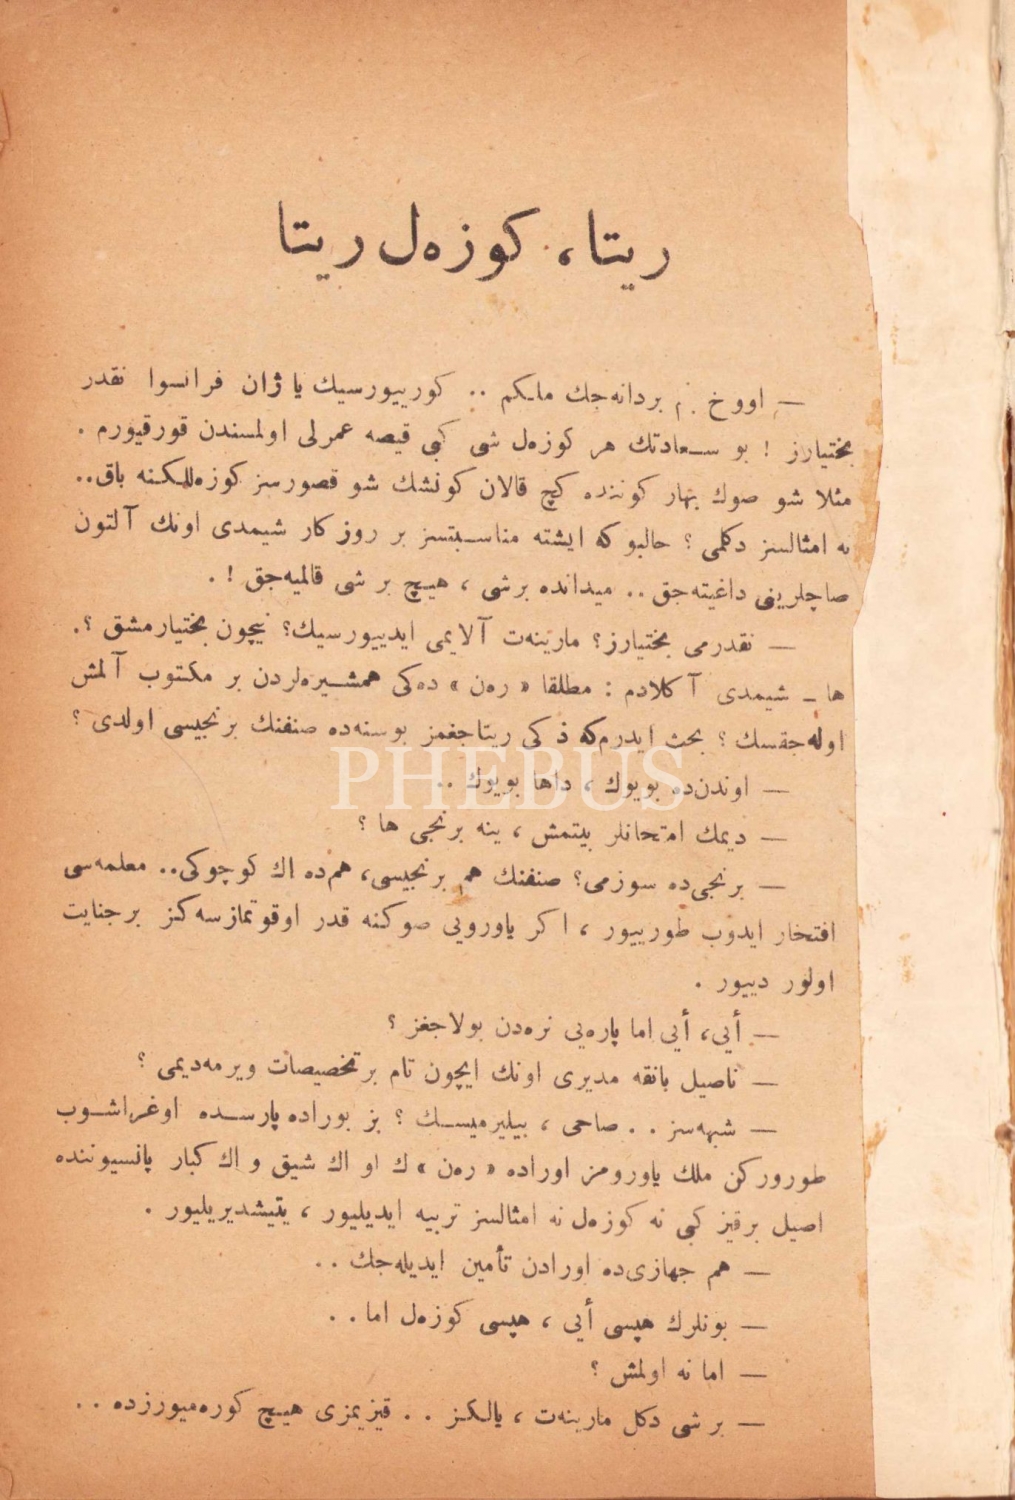 ريتا، كوزه‌ل ريتا
— اووخ بردانه‌جك ملكم .. كورييورسيك يا ژان فرانسوا نقدر
بختيارز ! بو سعادتك هر كوزه‌ل شى كبى قيصه عمرلى اولمسندن قورقيورم .
مثلا شو صوك بهار كوننده كچ قالان كونشك شو قصورسز كوزه‌للكنه باق..
نه امثالسز دكلمى ؟ حالبوكه ايشته مناسبتسز بر روزكار شيمدى اونك آلتون
صاچلرينى داغيته‌جق .. ميدانده برشى ، هيچ بر شى قالميه‌جق ! .
— نقدرمى بختيارز؟ مارينه‌ت آلايمى ايدييورسيك؟ نيچون بختيارمشق ؟.
ها ـ شيمدى آكلادم : مطلقا « ره‌ن » ده‌كى همشيره‌لردن بر مكتوب آلمش
اوله‌جقسك ؟ بحث ايدرم‌كه ذكى ريتاجغمز بوسنه‌ده صنفنك برنجيسى اولدى ؟
PHEBUS
— اوندن‌ده بويوك ، داها بويوك ..
— ديمك امتحانلر بيتمش ، ينه برنجى ها ؟
— برنجى‌ده سوزمى؟ صنفنك هم برنجيسى، هم‌ده اك كوچوكى.. معلمه‌سى
افتخار ايدوب طورييور ، اكر ياورويى صوكنه قدر اوقوتمازسه‌كز برجنايت
اولور دييور .
— أيى، أيى اما پاره‌يى نره‌دن بولاجغز ؟
— ناصيل بانقه مديرى اونك ايچون تام برتخصيصات ويرمه‌ديمى ؟
— شبهه‌سز . . صاحى ، بيليرميسك ؟ بز بوراده پارسده اوغراشوب
طوروركن ملك ياورومز اوراده « ره‌ن » ك او اك شيق و اك كبار پانسيوننده
اصيل برقيز كبى نه كوزه‌ل نه امثالسز تربيه ايديليور ، يتيشديريليور .
— هم جهازى‌ده اورادن تأمين ايديله‌جك ..
— بونلرك هپسى أيى ، هپسى كوزه‌ل اما . .
— اما نه اولمش ؟
— بر شى دكل مارينه‌ت ، يالكز . . قيزيمزى هيچ كوره‌ميورزده . .